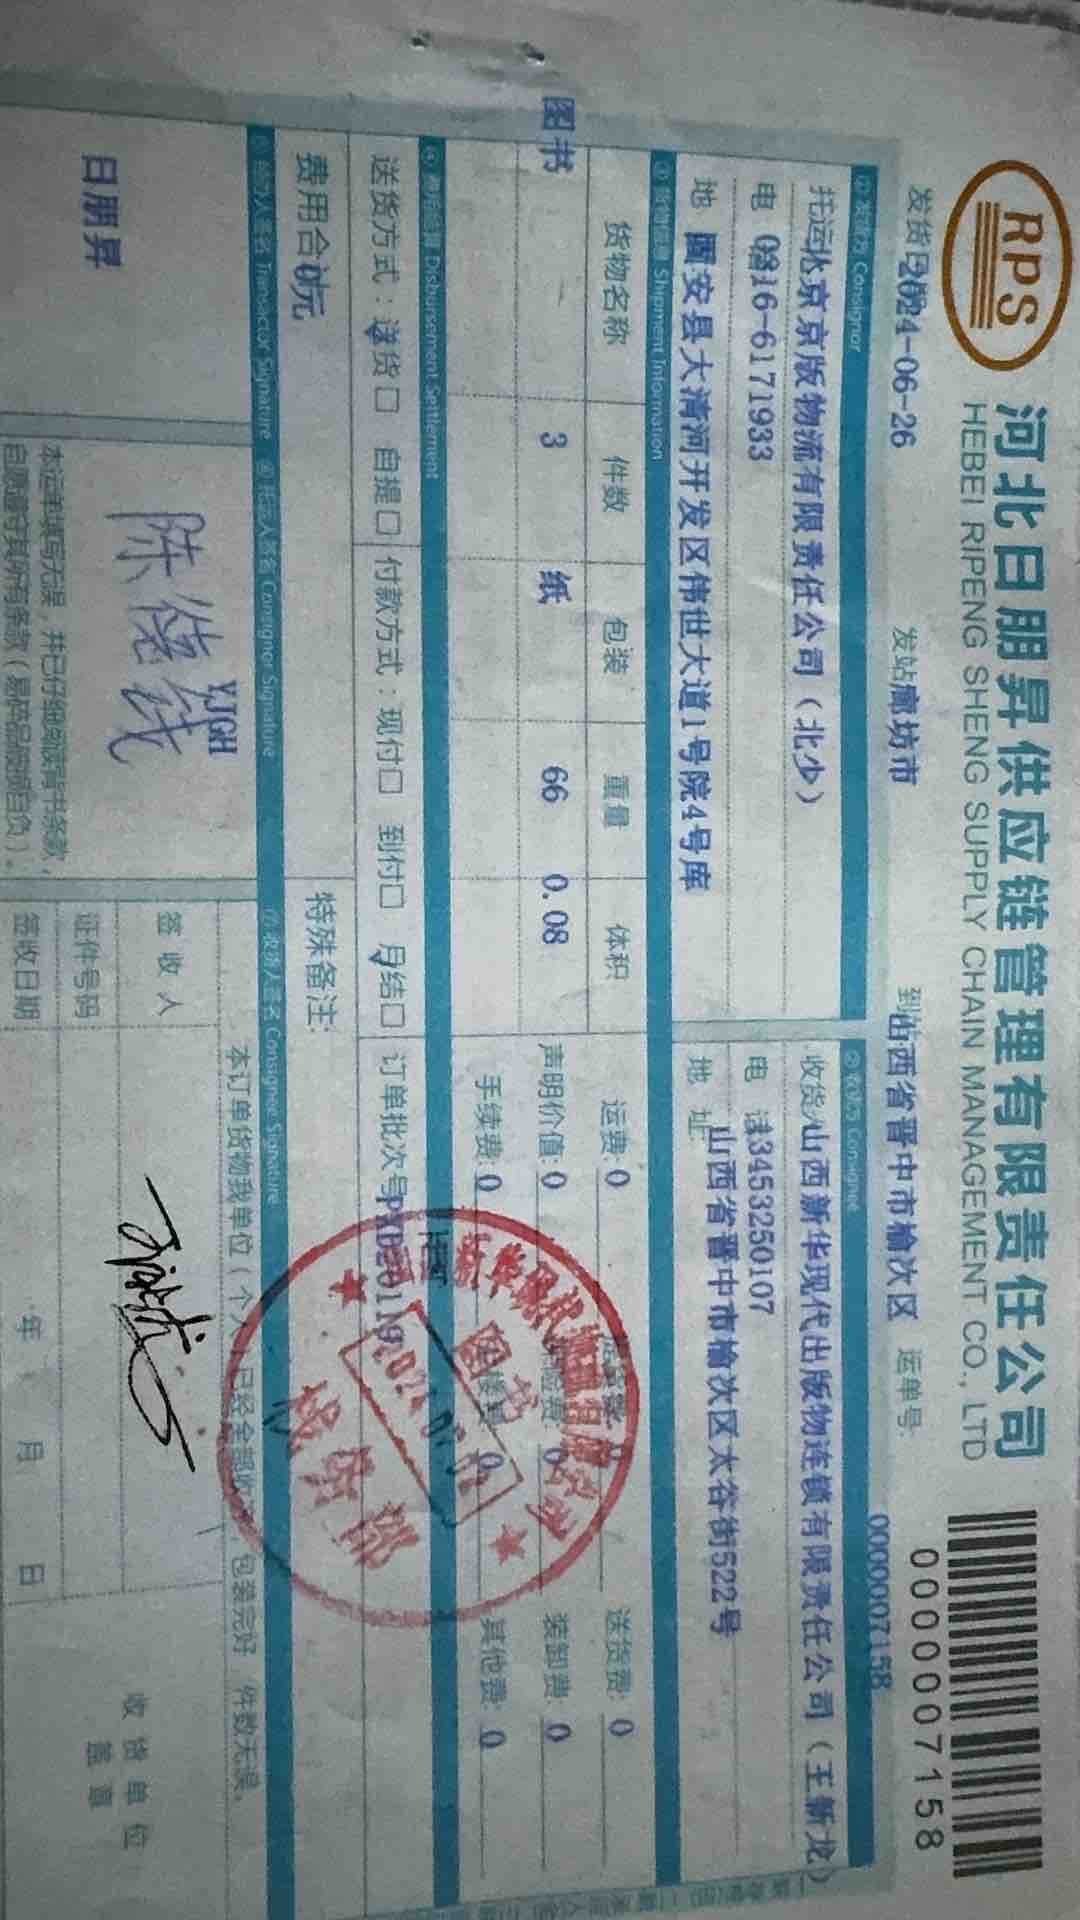 RPS
河北日朋昇供应链管理有限责任公司
HEBEI RIPENG SHENG SUPPLY CHAIN MANAGEMENT CO., LTD
0000007158
发货日期 2024-06-26 发站 廊坊市 到站 山西省晋中市榆次区 运单号 0000007158
① 发货方 Consignor ② 收货方 Consignee
托运人 北京京版物流有限责任公司（北少） 收货人 山西新华现代出版物连锁有限责任公司（王新龙）
电话 0316-6171933 电话 13453250107
地址 固安县大清河开发区伟世大道1号院4号库 地址 山西省晋中市榆次区太谷街522号
③ 货物信息 Shipment Information
货物名称 件数 包装 重量 体积 运费: 0 送货费: 0
图书 3 纸 66 0.08 声明价值: 0 保险费: 0 装卸费: 0
手续费: 0 上楼费: 0 其他费: 0
④ 费用结算 Disbursement Settlement
送货方式：送货□ 自提□ 付款方式：现付□ 到付□ 月结□ 订单批次号
费用合计 0元 特殊备注:
⑤ 经办人签名 Transactor Signature ⑥ 托运人签名 Consignor Signature ⑦ 收货人签名 Consignee Signature
日朋昇
YJGH
本订单货物我单位（个人）已经全部收讫，包装完好，件数无误。
签收人
证件号码
签收日期 年 月 日
收货单位
盖章
本运单填写无误，并已仔细阅读背书条款，
自愿遵守其所有条款（易碎品破损自负）。